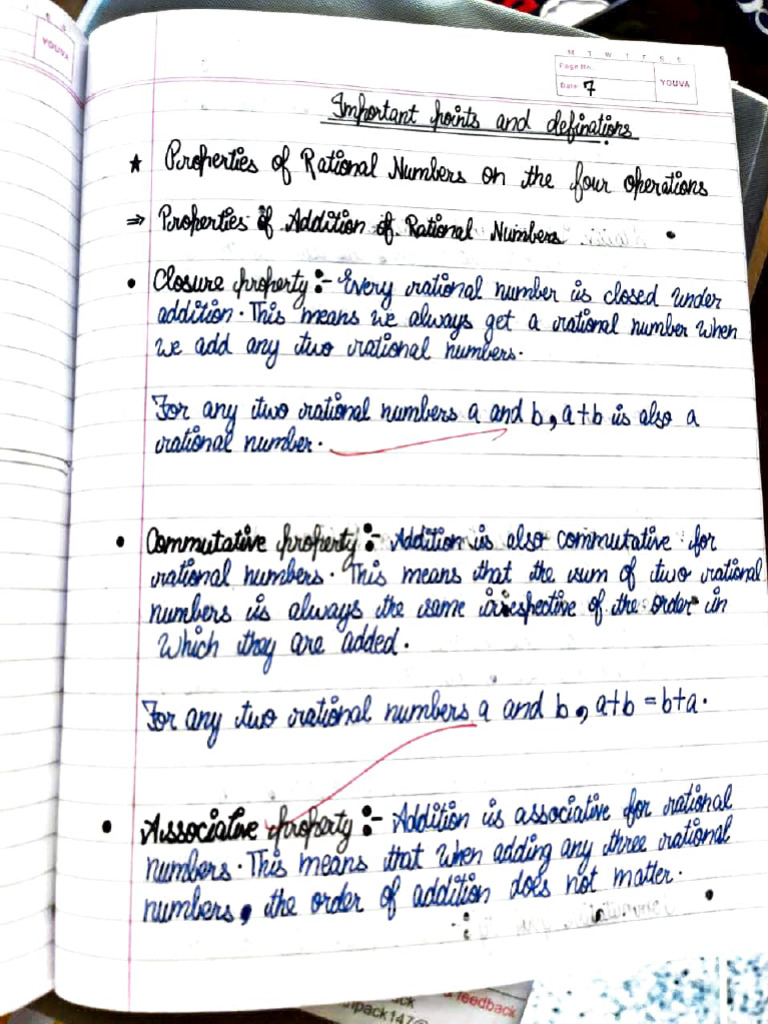 YOUVA
M T W T F S S
Page No.
Date 7
YOUVA
Important points and definations
★ Properties of Rational Numbers on the four operations
⇒ Properties of Addition of Rational Numbers
• Closure property :- Every rational number is closed under
addition. This means we always get a rational number when
we add any two rational numbers.
For any two rational numbers a and b, a+b is also a
rational number.
• Commutative property :- Addition is also commutative for
rational numbers. This means that the sum of two rational
numbers is always the same irrespective of the order in
which they are added.
For any two rational numbers a and b, a+b = b+a.
• Associative property :- Addition is associative for rational
numbers. This means that when adding any three rational
numbers, the order of addition does not matter.
feedback
pack147@